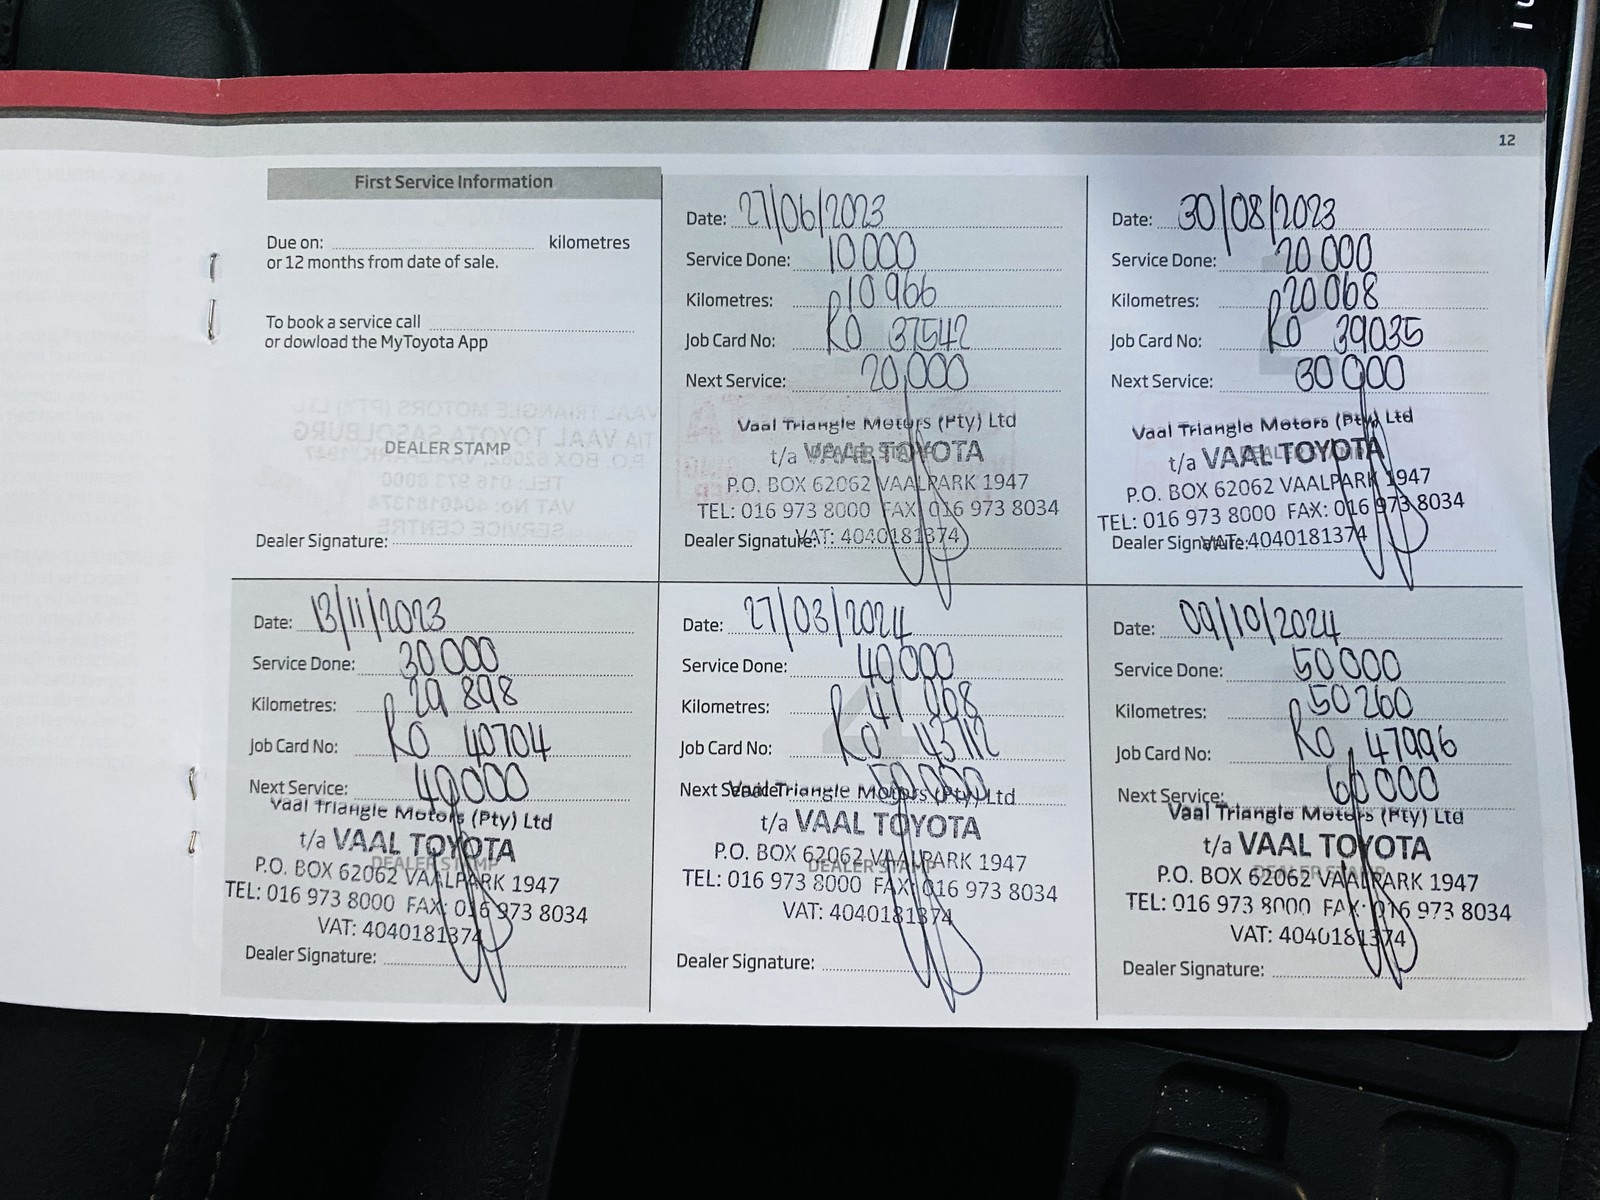 12
First Service Information
Due on: kilometres
or 12 months from date of sale.
To book a service call
or dowload the MyToyota App
DEALER STAMP
Dealer Signature:
Date: 27/06/2023
Service Done: 10 000
Kilometres: 10 966
Job Card No: RO 37542
Next Service: 20,000
Vaal Triangle Motors (Pty) Ltd
t/a VAAL TOYOTA
P.O. BOX 62062 VAALPARK 1947
TEL: 016 973 8000 FAX: 016 973 8034
Dealer Signature: VAT: 4040181374
Date: 30/08/2023
Service Done: 20 000
Kilometres: 20 068
Job Card No: RO 39035
Next Service: 30 000
Vaal Triangle Motors (Pty) Ltd
t/a VAAL TOYOTA
P.O. BOX 62062 VAALPARK 1947
TEL: 016 973 8000 FAX: 016 973 8034
Dealer Signature: VAT: 4040181374
Date: 13/11/2023
Service Done: 30 000
Kilometres: 29 898
Job Card No: RO 40704
Next Service: 40000
Vaal Triangle Motors (Pty) Ltd
t/a VAAL TOYOTA
DEALER STAMP
P.O. BOX 62062 VAALPARK 1947
TEL: 016 973 8000 FAX: 016 973 8034
VAT: 4040181374
Dealer Signature:
Date: 27/03/2024
Service Done: 40 000
Kilometres: 41 068
Job Card No: RO 43712
Next Service: 50,000
Vaal Triangle Motors (Pty) Ltd
t/a VAAL TOYOTA
P.O. BOX 62062 VAALPARK 1947
DEALER STAMP
TEL: 016 973 8000 FAX: 016 973 8034
VAT: 4040181374
Dealer Signature:
Date: 09/10/2024
Service Done: 50 000
Kilometres: 50 260
Job Card No: RO 47996
Next Service: 60 000
Vaal Triangle Motors (Pty) Ltd
t/a VAAL TOYOTA
DEALER STAMP
P.O. BOX 62062 VAALPARK 1947
TEL: 016 973 8000 FAX: 016 973 8034
VAT: 4040181374
Dealer Signature: